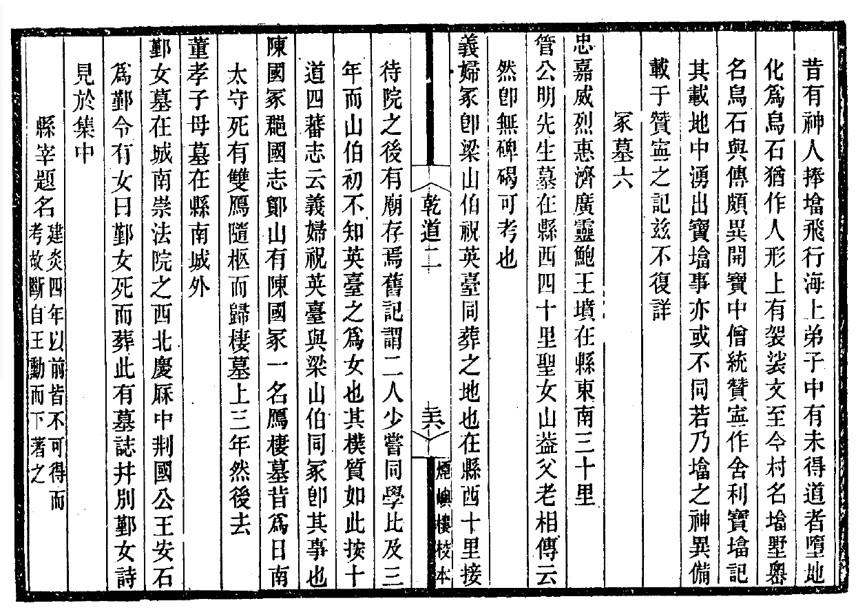 昔有神人捧塔飛行海上弟子中有未得道者墮地
化爲烏石猶作人形上有袈裟文至今村名塔墅嶴
名烏石與傳頗異開寶中僧統贊寧作舍利寶塔記
其載地中湧出寶塔事亦或不同若乃塔之神異備
載于贊寧之記茲不復詳
冢墓六
忠嘉威烈惠濟廣靈鮑王墳在縣東南三十里
管公明先生墓在縣西四十里聖女山益父老相傳云
然卽無碑碣可考也
義婦冢卽梁山伯祝英臺同葬之地也在縣西十里接
乾道二
煙嶼樓校本
待院之後有廟存焉舊記謂二人少嘗同學比及三
年而山伯初不知英臺之爲女也其樸質如此按十
道四蕃志云義婦祝英臺與梁山伯同冢卽其事也
陳國冢郡國志鄮山有陳國冢一名鴈棲墓昔爲日南
太守死有雙鴈隨柩而歸棲墓上三年然後去
董孝子母墓在縣南城外
鄞女墓在城南崇法院之西北慶厤中荆國公王安石
爲鄞令有女曰鄞女死而葬此有墓誌幷別鄞女詩
見於集中
縣宰題名建炎四年以前皆不可得而
考故斷自王勳而下著之